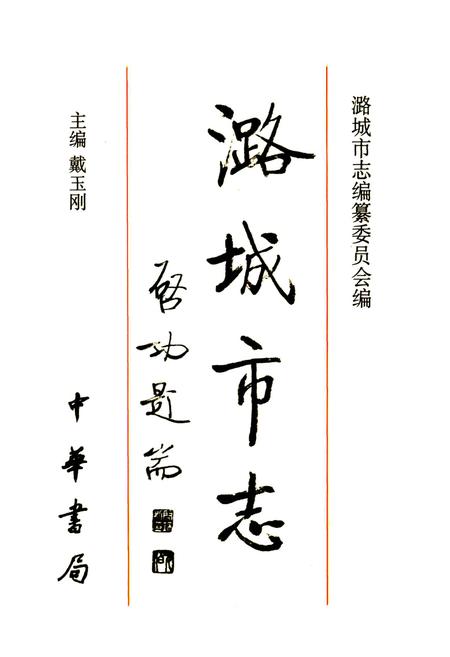 潞城市志编纂委员会编
潞城市志
启功题耑
主编 戴玉刚
中華書局